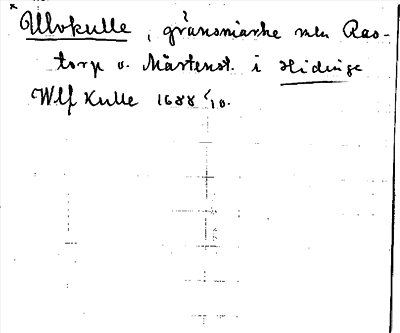 Ulvkulle, gränsmärke mln Ras-
torp o. Mårtenst. i Hidinge
Wlf Kulle 1688 1/10.